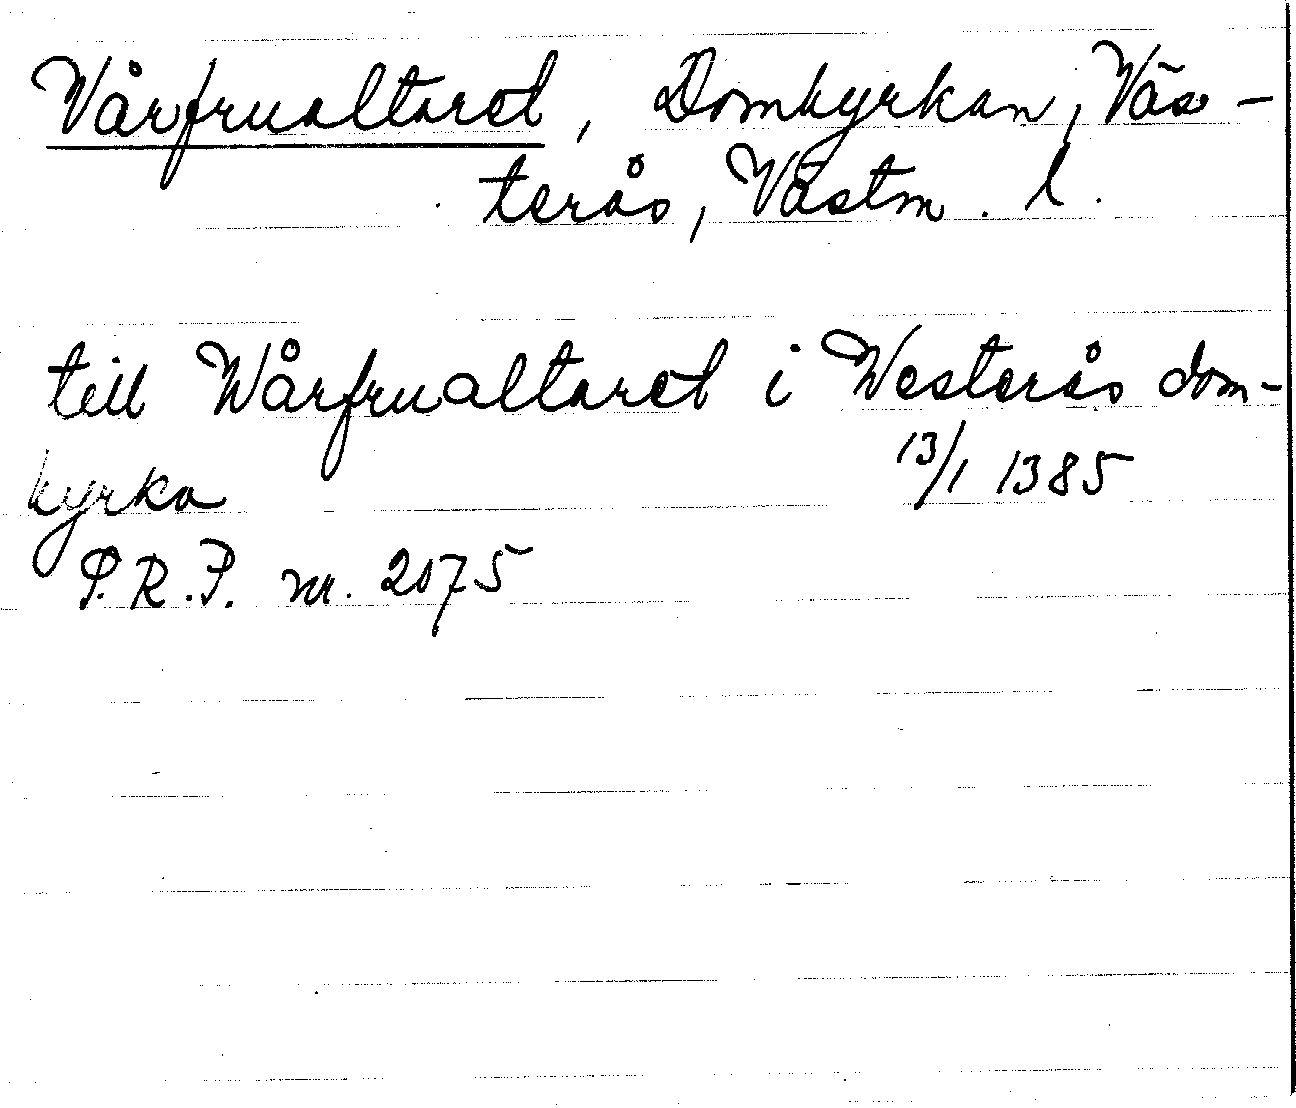 Vårfrualtaret, Domkyrkan, Väs-
terås, Västm. l.
till Wårfrualtaret i Westerås dom-
kyrka 13/1 1385
P.R.P. nr. 2075